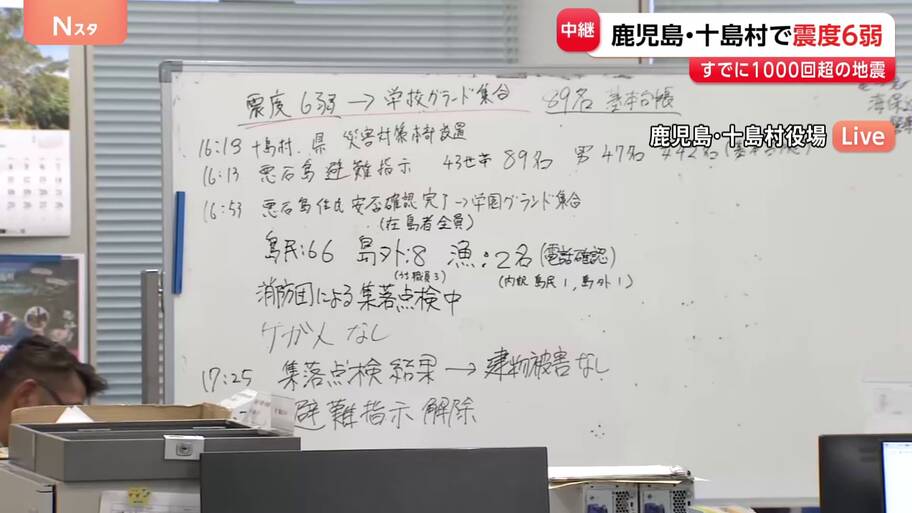 Nスタ
中継 鹿児島・十島村で震度6弱
すでに1000回超の地震
鹿児島・十島村役場 Live
震度 6弱 → 学校グランド集合 89名 基本台帳
16:13 十島村、県 災害対策本部設置
16:13 悪石島 避難指示 43世帯 89名 男47名 女42名
16:53 悪石島住民 安否確認完了→学園グランド集合
(在島者全員)
島民:66 島外:8 漁:2名(電話確認)
(内訳 島民1, 島外1)
消防団による集落点検中
ケガ人 なし
17:25 集落点検 結果 → 建物被害なし
避難指示 解除